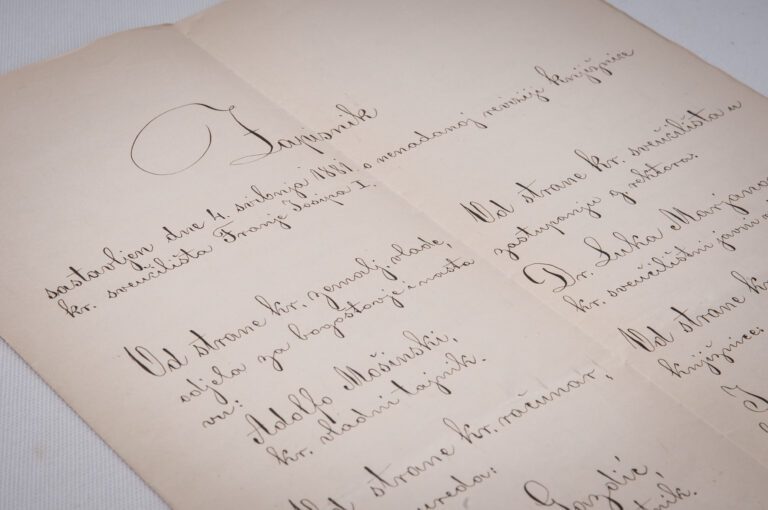 Zapisnik
sastavljen dne 4. sribnja 1881 o nenadanoj reviziji knjižnice
kr. sveučilišta Franje Josipa I.
Od strane kr. zemalj. vlade,
odjela za bogoštovje i nasta
vu:
Adolfo Mošinski,
kr. vladni tajnik.
strane kr. računar,
ureda:
Gazdić,
Od strane kr. sveučilišta u
zastupanju g. rektora.
Dr. Luka Marjano
kr. sveučilištni javni
Od strane k
knjižnice: